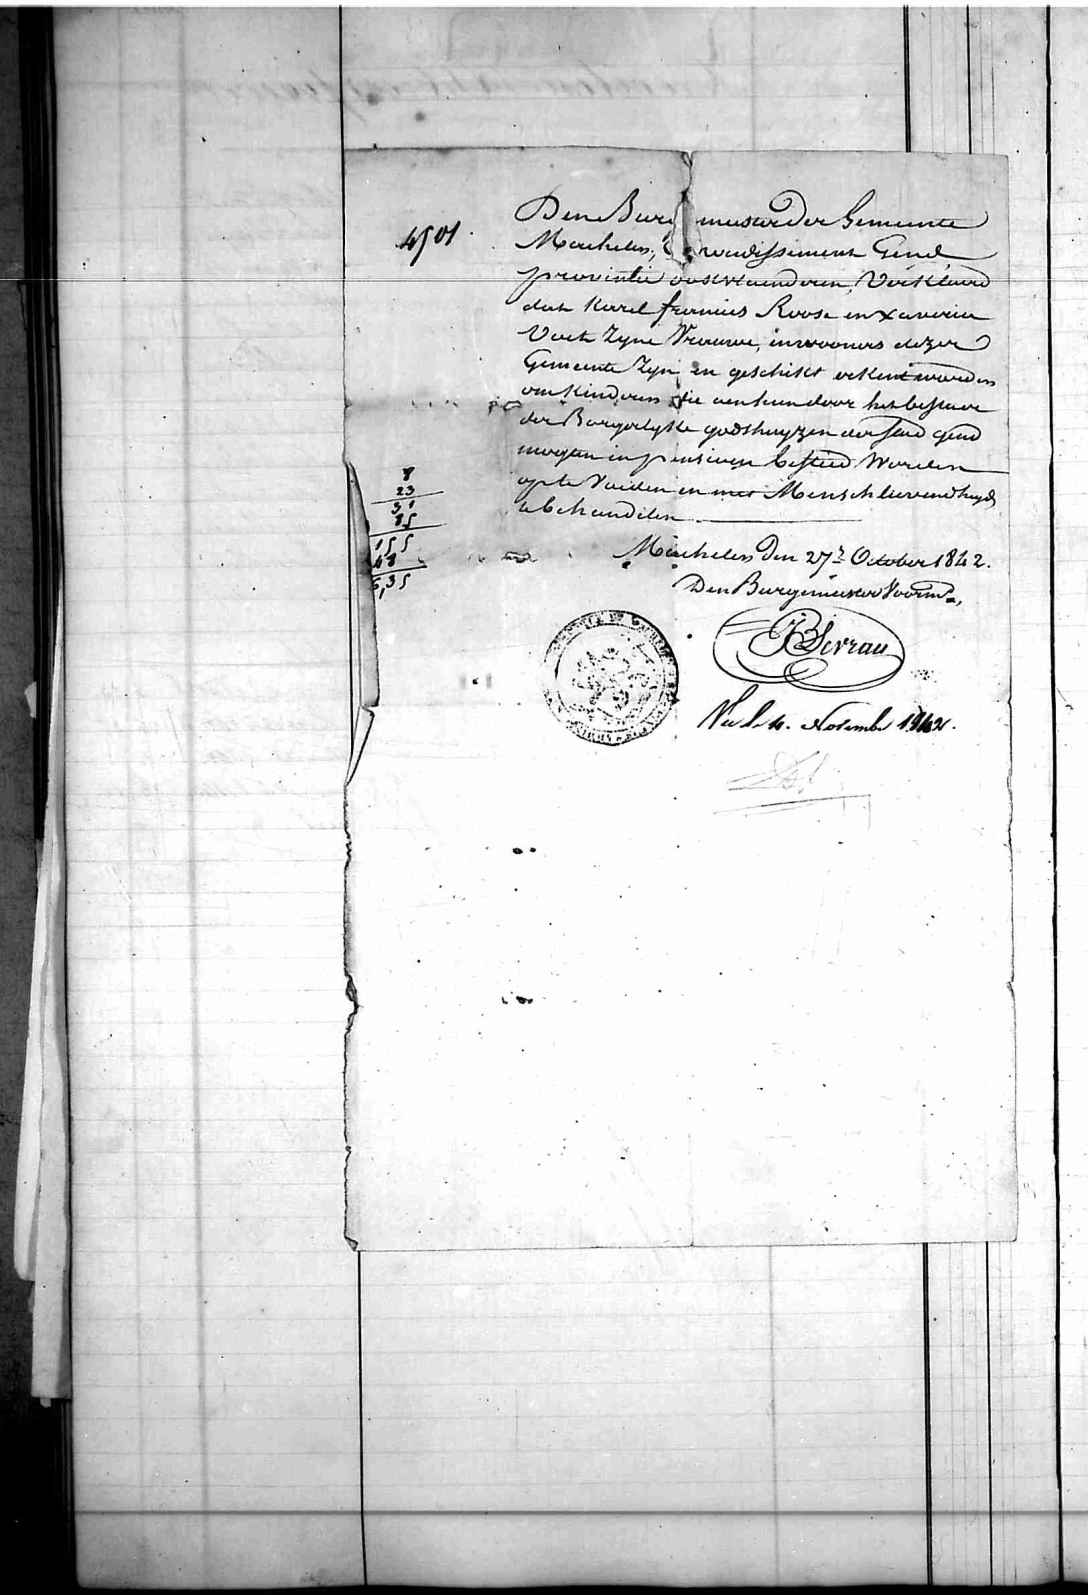 4501
Den Burgmeester der Gemeente
Machelen, arrondissement Gend
provintie oostvlaenderen, Verklaerd
dat Karel fransies Roose en xaveria
Voet Zyne Vrouwe, inwooners dezer
Gemeente Zyn en geschikt erkent worden
om Kinderen die aen hun door het bestuer
der Borgerlyke godshuyzen der stad gend
mogten in pensioen besteed Worden
op te Voeden en met Menschlievendheyd
te behandelen
8
23
31
155
48
6,35
Machelen Den 27r October 1842.
Den Burgemeester Voorm.,
Vu le 4. Novembre 1842.